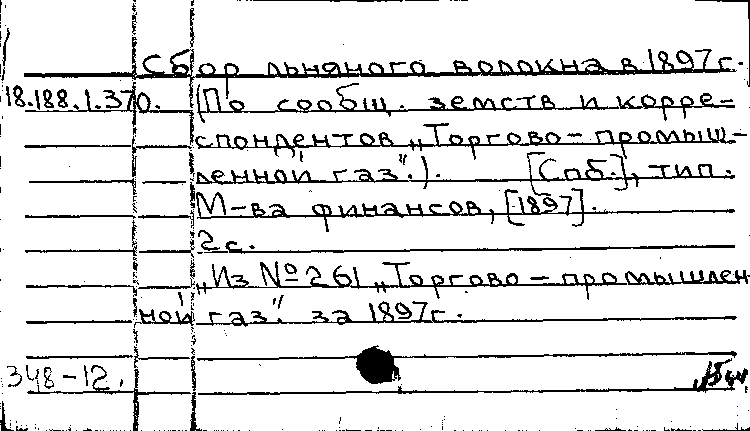 Сбор льняного волокна в 1897г.
18.188.1.370. (По сообщ. земств и корре-
спондентов „Торгово-промыш-
ленной газ.“). [Спб.], тип.
М-ва финансов, [1897].
2с.
„Из № 261 „Торгово-промышлен
ной газ“. за 1897г.
348-12.